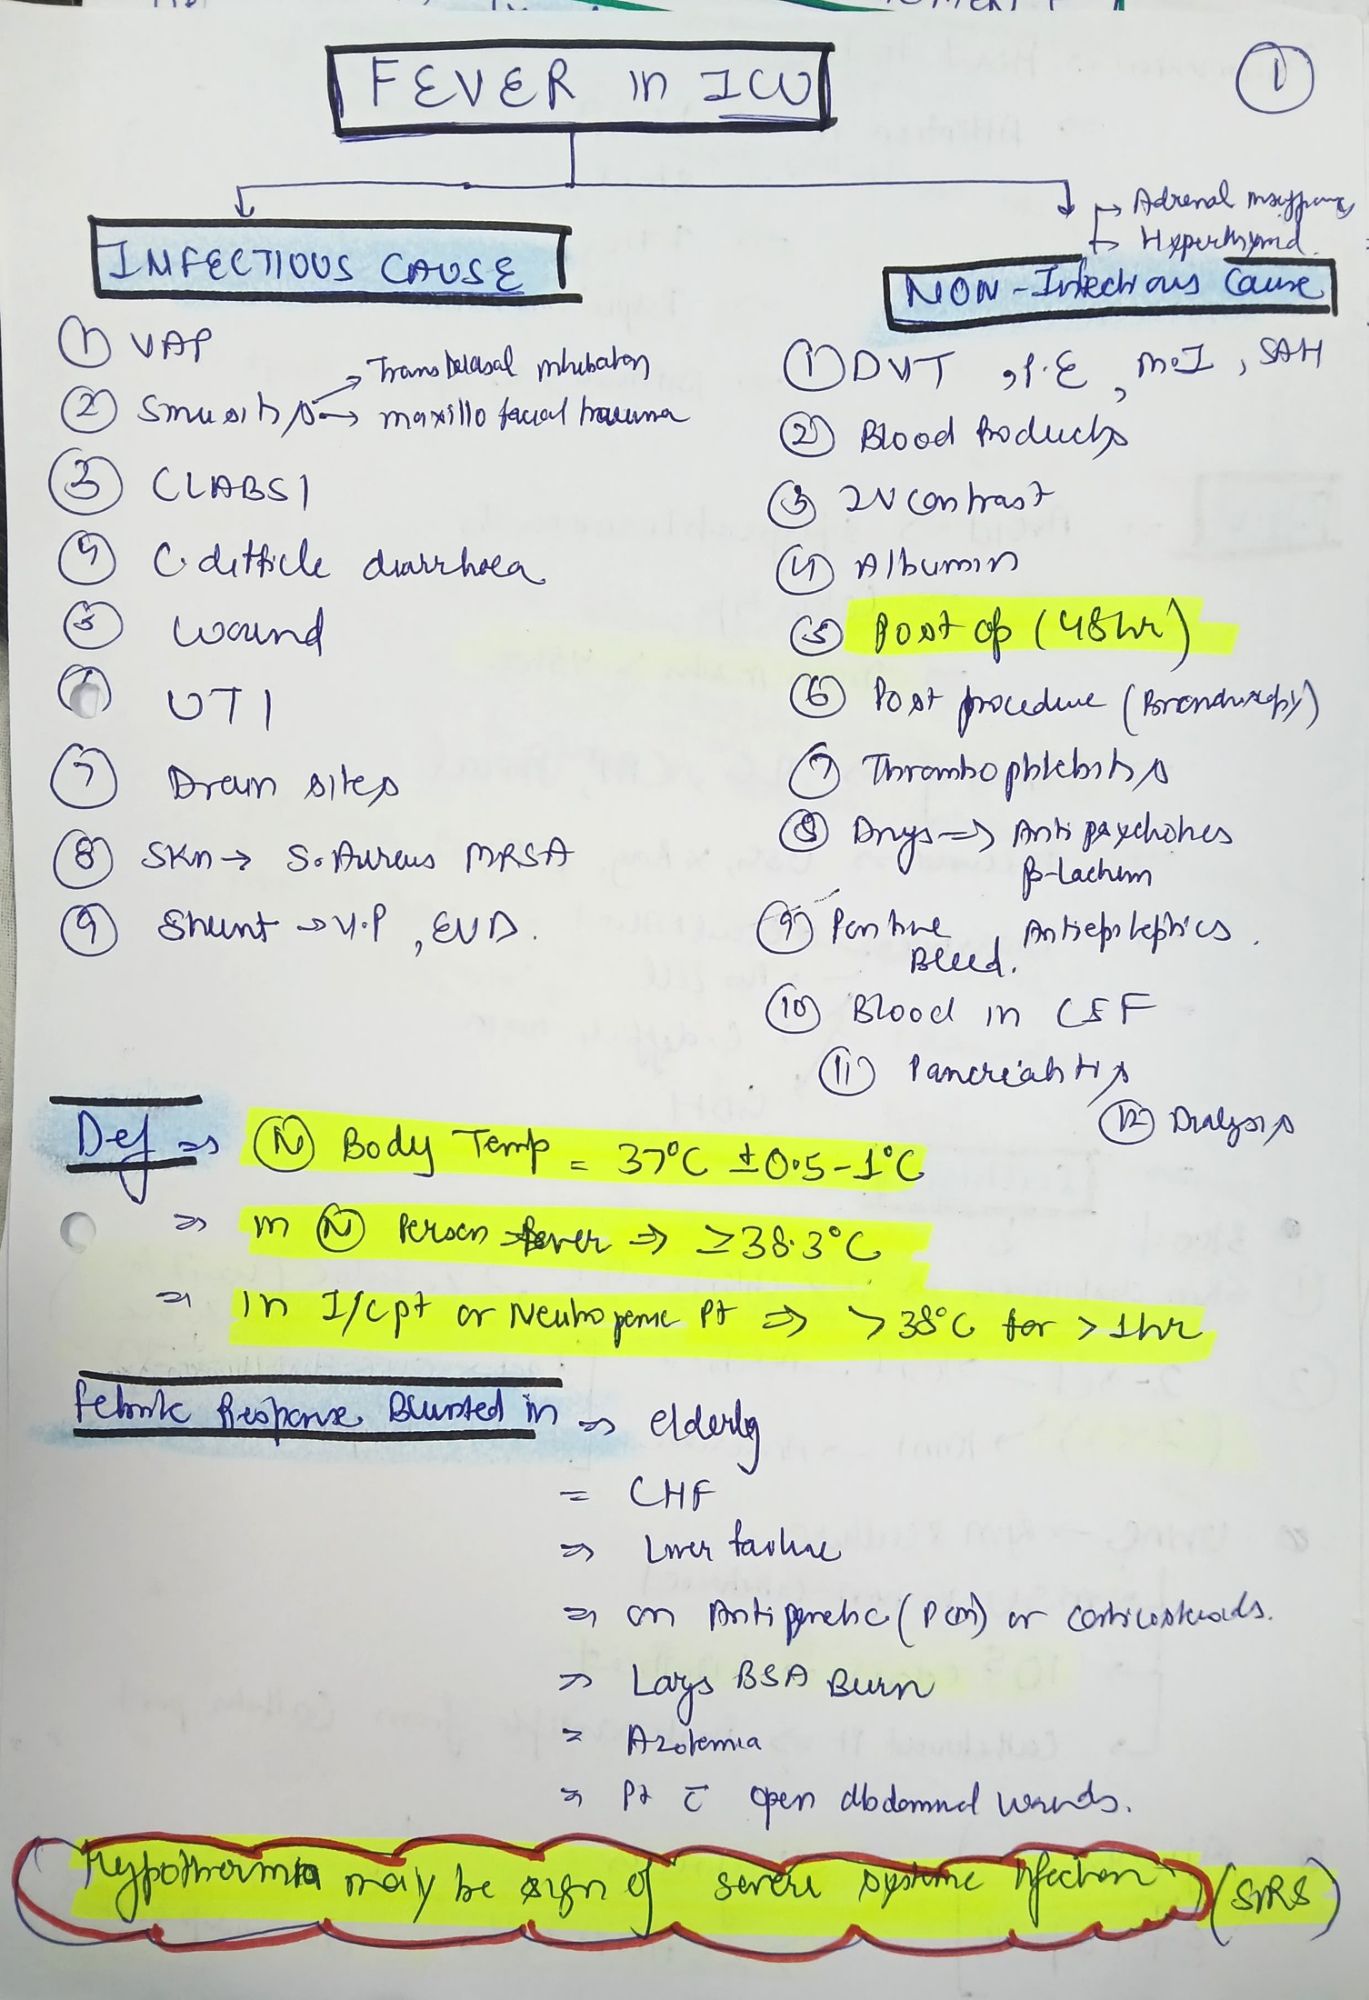 FEVER in ICU
1
INFECTIOUS CAUSE
① VAP
② Sinusitis → Transnasal intubation
→ maxillo facial trauma
③ CLABSI
④ C. difficle diarrhoea
⑤ wound
⑥ UTI
⑦ Drain sites
⑧ Skin → S. Aureus MRSA
⑨ Shunt → V.P, EVD.
→ Adrenal
→ Hyperthyroid.
NON-Infectious Cause
① DVT, P.E, M.I, SAH
② Blood Products
③ IV contrast
④ Albumin
⑤ Post op (48hr)
⑥ Post procedure (Bronchoscopy)
⑦ Thrombophlebitis
⑧ Drugs → Antipsychotics
β-lactum
Antiepileptics.
⑨
Bleed.
⑩ Blood in CSF
⑪ Pancreatitis
⑫ Dialysis
Def ⇒ Ⓝ Body Temp = 37°C ±0.5-1°C
⇒ in Ⓝ Person fever ⇒ ≥38.3°C
⇒ In I/c pt or Neutropenic Pt ⇒ >38°C for >1hr
Febrile Response Blunted in ⇒ elderly
= CHF
⇒ Liver failure
⇒ on Antipyretic (PCM) or corticosteroids.
⇒ Large BSA Burn
= Azotemia
⇒ Pt c̄ open abdominal wounds.
Hypothermia may be sign of severe systemic infection (SIRS)